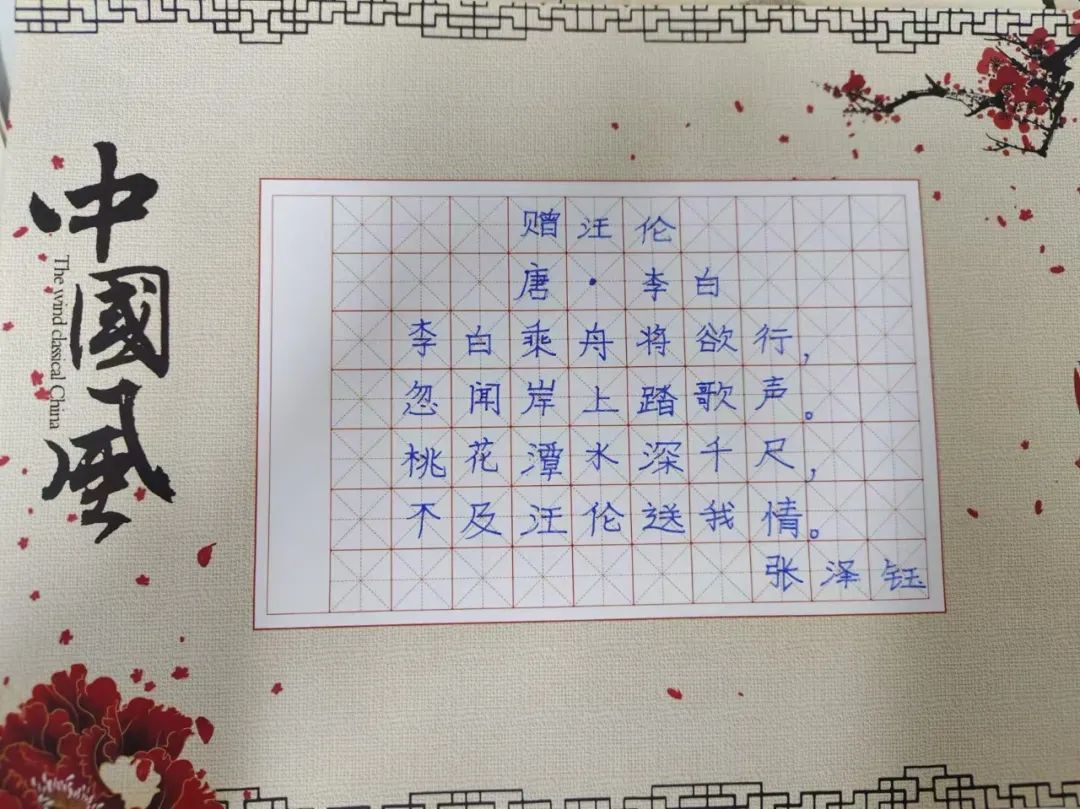 中國風
The wind classical China
赠汪伦
唐·李白
李白乘舟将欲行，
忽闻岸上踏歌声。
桃花潭水深千尺，
不及汪伦送我情。
张泽钰